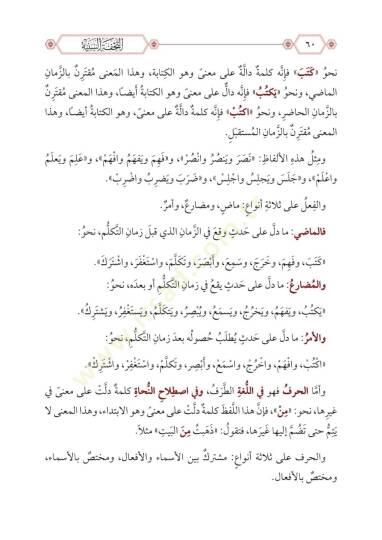 ٦٠ التحفة السنية
نحوُ «كَتَبَ» فإنَّه كلمةٌ دالَّةٌ على معنىً وهو الكِتابة، وهذا المَعنى مُقتَرِنٌ بالزَّمانِ
الماضي، ونحوُ «يَكتُبُ» فإنَّه دالٌّ على معنىً وهو الكتابةُ أيضًا، وهذا المعنى مُقتَرِنٌ
بالزَّمانِ الحاضرِ، ونحوُ «اكتُبْ» فإنَّه كلمةٌ دالَّةٌ على معنىً، وهو الكتابةُ أيضًا، وهذا
المعنى مُقتَرِنٌ بالزَّمانِ المُستقبَلِ.
ومِثلُ هذهِ الألفاظِ: «نَصَرَ ويَنصُرُ وانْصُرْ»، و«فَهِمَ ويَفهَمُ وافْهَمْ»، و«عَلِمَ ويَعلَمُ
واعْلَمْ»، و«جَلَسَ ويَجلِسُ واجْلِسْ»، و«ضَرَبَ ويَضرِبُ واضْرِبْ».
والفِعلُ على ثلاثةِ أنواعٍ: ماضٍ، ومضارعٌ، وأمرٌ.
فالماضي: ما دلَّ على حَدثٍ وقعَ في الزَّمانِ الذي قبلَ زمانِ التَّكلُّمِ، نحوُ:
«كَتَبَ، وفَهِمَ، وخَرَجَ، وسَمِعَ، وأَبْصَرَ، وتَكلَّمَ، واسْتَغْفَرَ، واشْتَرَكَ».
والمُضارعُ: ما دلَّ على حَدثٍ يقعُ في زمانِ التَّكلُّمِ أو بعدَه، نحوُ:
«يَكتُبُ، ويَفهَمُ، ويَخرُجُ، ويَسمَعُ، ويُبْصِرُ، ويَتكلَّمُ، ويَستَغْفِرُ، ويَشترِكُ».
والأمرُ: ما دلَّ على حَدثٍ يُطلَبُ حُصولُه بعدَ زمانِ التَّكلُّمِ، نحوُ:
«اكتُبْ، وافْهَمْ، واخْرُجْ، واسْمَعْ، وأَبْصِر، وتَكلَّمْ، واسْتَغْفِرْ، واشْتَرِكْ».
وأمَّا الحرفُ فهو في اللُّغةِ الطَّرَفُ، وفي اصطِلاحِ النُّحاةِ كلمةٌ دلَّت على معنًى في
غيرِها، نحو: «مِنْ»، فإنَّ هذا اللَّفظَ كلمةٌ دلَّتْ على معنىً وهو الابتداء، وهذا المعنى لا
يَتِمُّ حتى تَضُمَّ إليها غَيرَها، فتقولُ: «ذَهَبتُ مِنَ البَيتِ» مثلًا.
والحرف على ثلاثة أنواعٍ: مشتركٌ بين الأسماء والأفعال، ومختصٌ بالأسماء،
ومختصٌ بالأفعال.